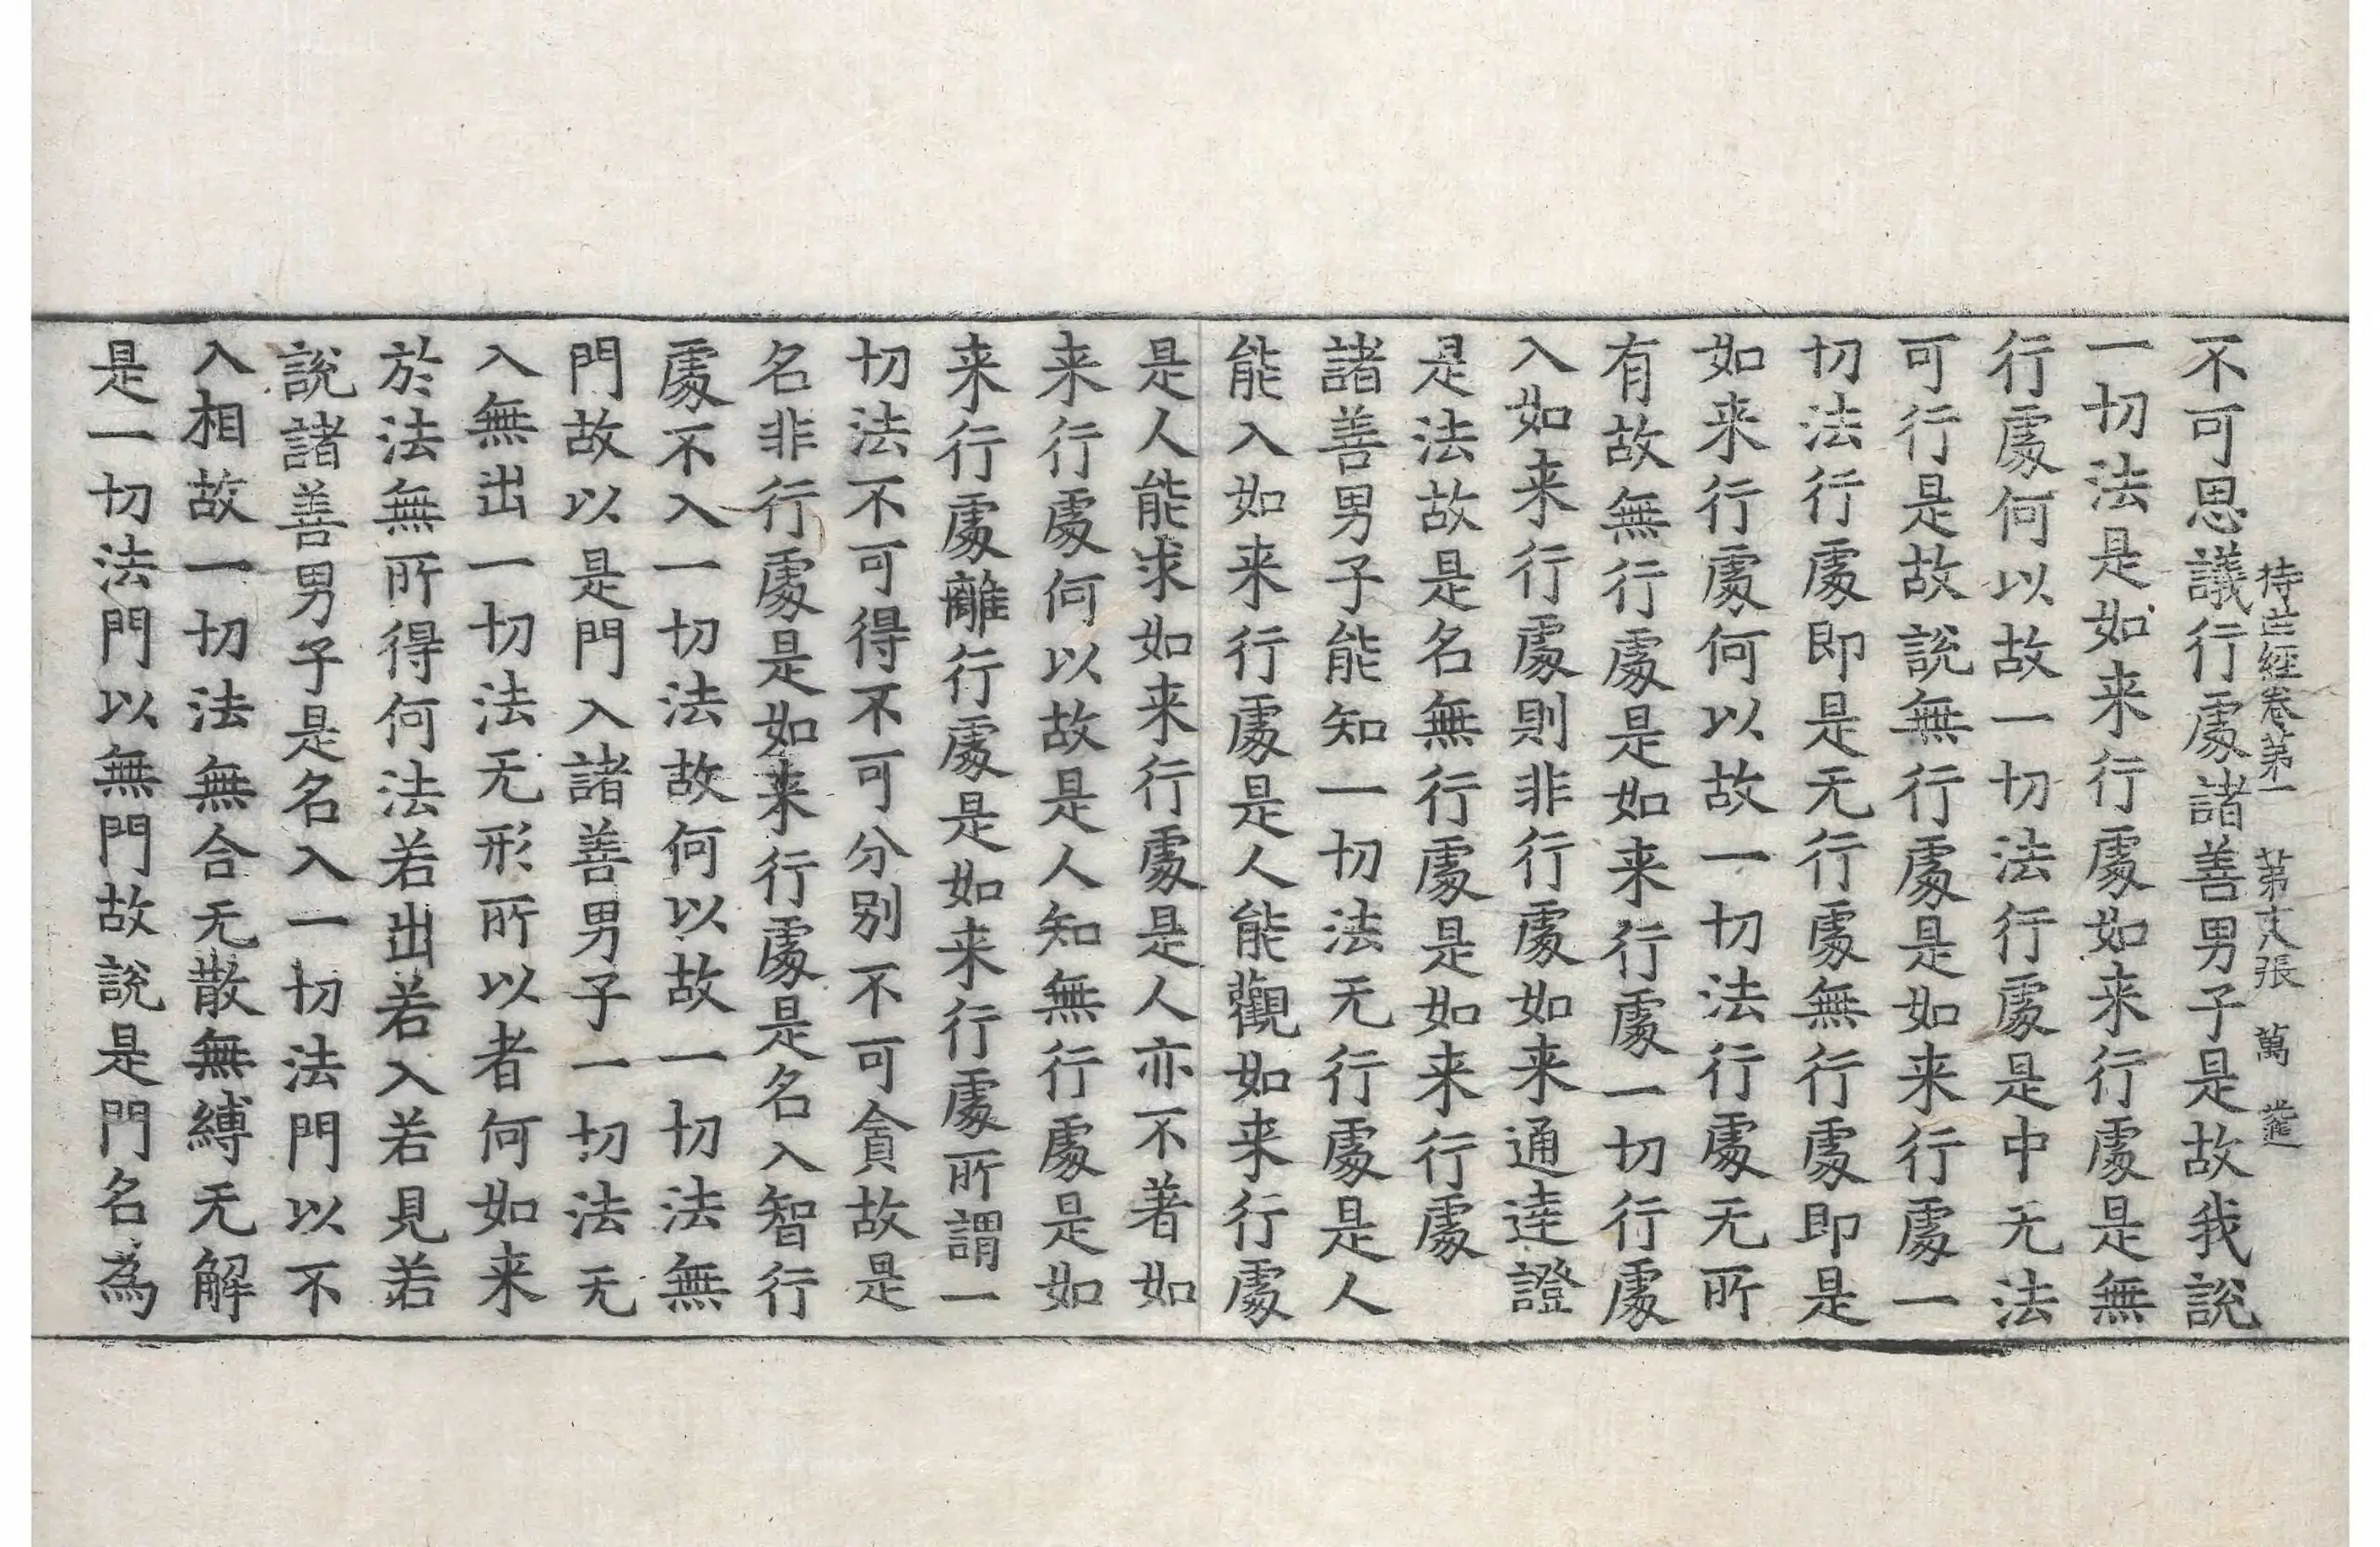 不可思議行處諸善男子是故我說
持世經卷第一 第十八張 萬
一切法是如来行處如来行處是無
行處何以故一切法行處是中无法
可行是故說無行處是如来行處一
切法行處即是无行處無行處即是
如来行處何以故一切法行處无所
有故無行處是如来行處一切行處
入如来行處則非行處如来通達證
是法故是名無行處是如来行處
諸善男子能知一切法无行處是人
能入如来行處是人能觀如来行處
是人能求如来行處是人亦不著如
来行處何以故是人知無行處是如
来行處離行處是如来行處所謂一
切法不可得不可分别不可貪故是
名非行處是如来行處是名入智行
處不入一切法故何以故一切法無
門故以是門入諸善男子一切法无
入無出一切法无形所以者何如来
於法無所得何法若出若入若見若
說諸善男子是名入一切法門以不
入相故一切法無合无散無縛无解
是一切法門以無門故說是門名為